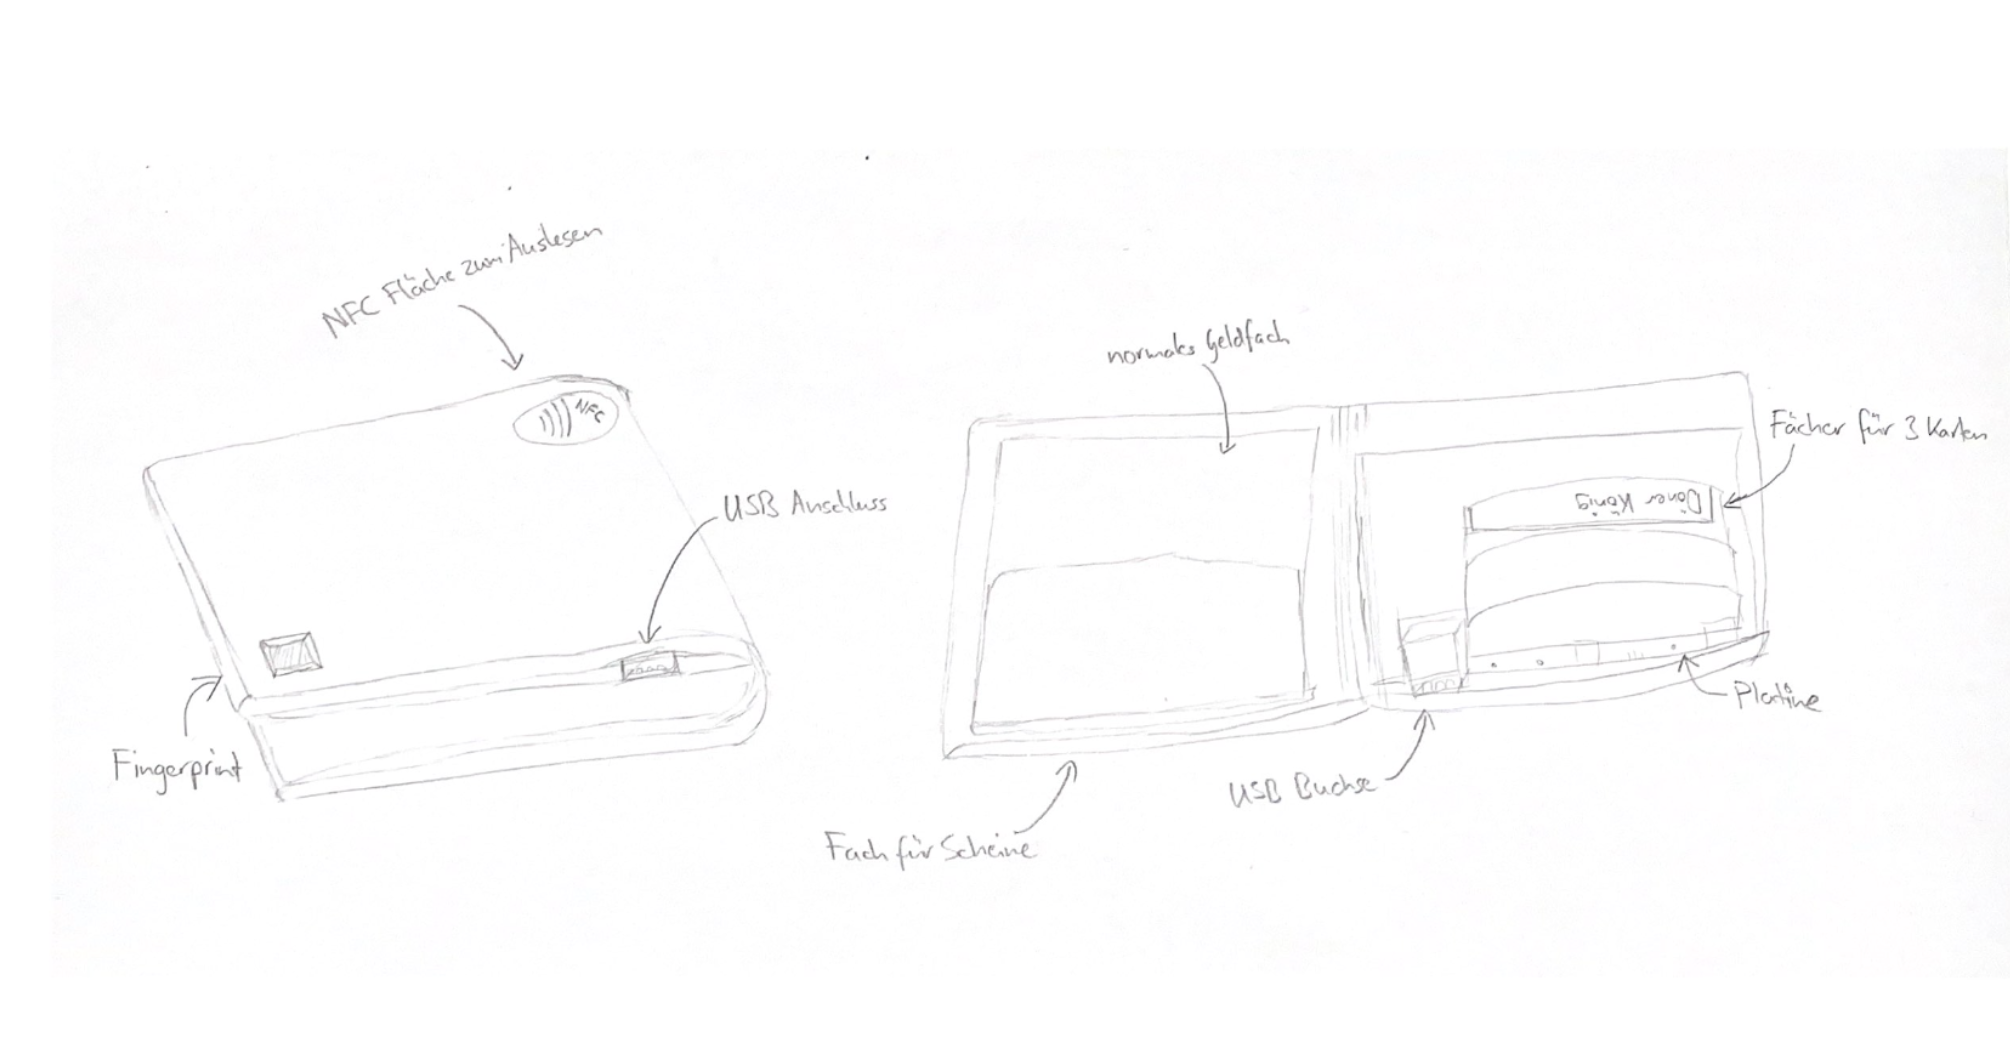 NFC Fläche zum Auslesen
NFC
USB Anschluss
Fingerprint
normales Geldfach
Fächer für 3 Karten
Döner König
Platine
USB Buchse
Fach für Scheine